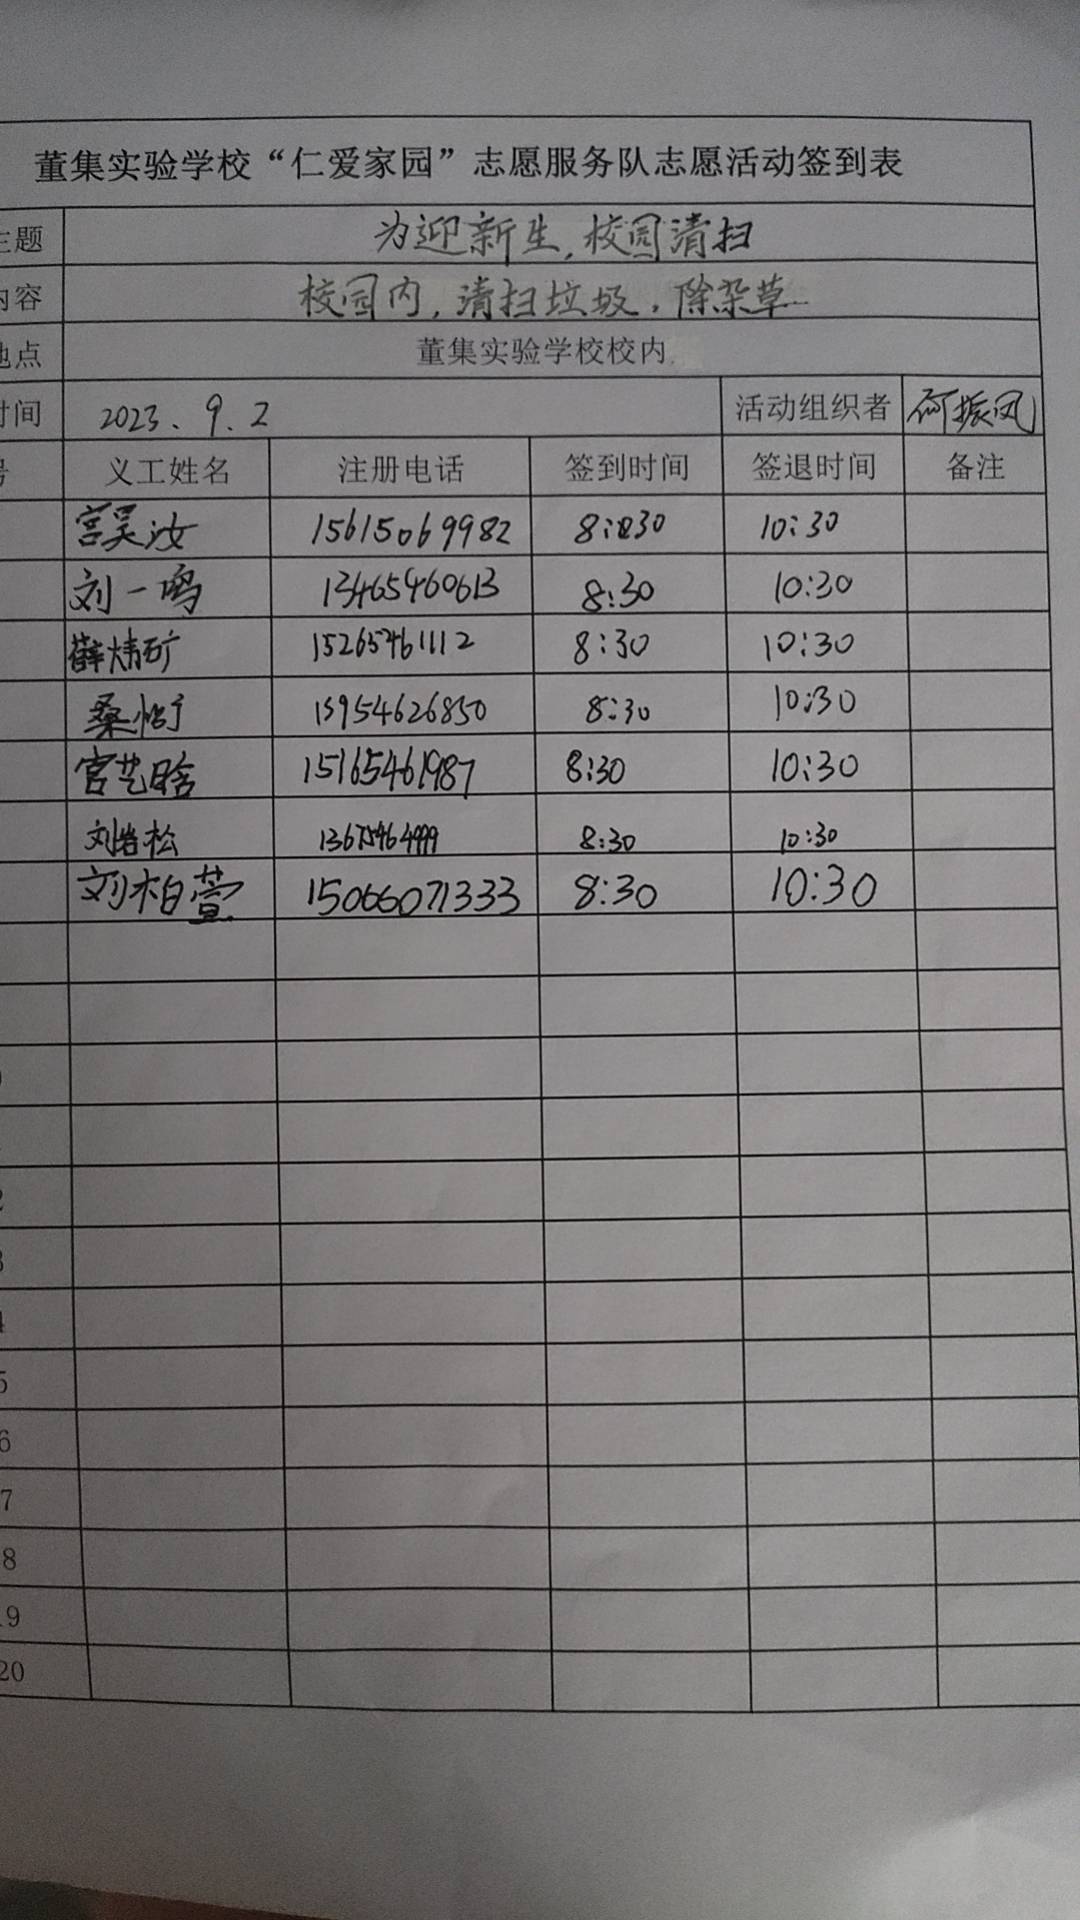 董集实验学校“仁爱家园”志愿服务队志愿活动签到表
主题 为迎新生,校园清扫
内容 校园内,清扫垃圾,除杂草
地点 董集实验学校校内
时间 2023、9、2 活动组织者 振凤
号 义工姓名 注册电话 签到时间 签退时间 备注
宫吴汝 15615069982 8:30 10:30
刘一鸣 13465460613 8:30 10:30
薛炜矿 15265461112 8:30 10:30
桑 15954626850 8:30 10:30
宫艺晗 15165461987 8:30 10:30
刘岩松 8:30 10:30
刘柏萱 15066071333 8:30 10:30
2
3
4
5
6
7
8
19
20